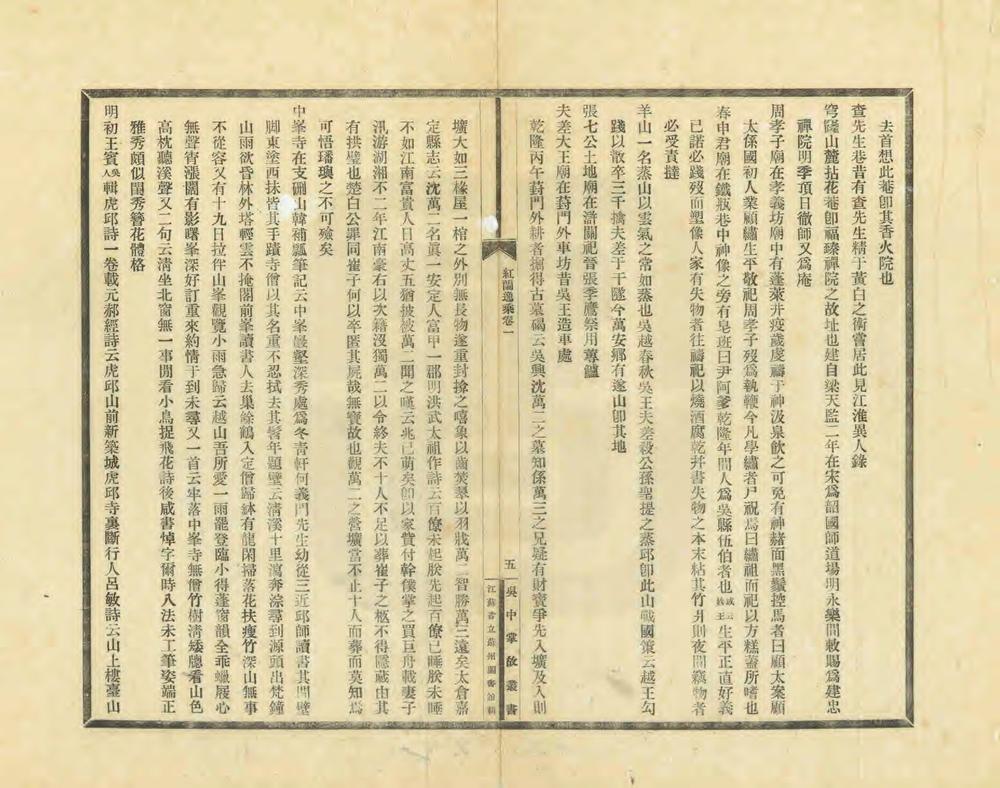 去首想此菴卽其香火院也
查先生巷昔有查先生精于黃白之術嘗居此見江淮異人錄
穹窿山麓拈花菴卽福臻禪院之故址也建自梁天監二年在宋爲韶國師道場明永樂間敕賜爲建忠
禪院明季項目徹師又爲庵
周孝子廟在孝義坊廟中有蓬萊井疫歲虔禱于神汲泉飲之可免有神赭面黑鬚控馬者曰顧太案顧
太係國初人業顧繡生平敬祀周孝子歿爲執鞭今凡學繡者戶祝焉曰繡祖而祀以方糕蓋所嗜也
春申君廟在鐵瓶巷中神像之旁有皂班曰尹阿爹乾隆年間人爲吳縣伍伯者也或云姓王生平正直好義
已諾必踐歿而塑像人家有失物者往禱祀以燒酒腐乾幷書失物之本末粘其竹爿則夜間竊物者
必受責撻
羊山一名蒸山以雲氣之常如蒸也吳越春秋吳王夫差殺公孫聖提之蒸邱卽此山戰國策云越王勾
踐以散卒三千擒夫差于干隧今萬安鄉有遂山卽其地
張七公土地廟在滸關祀晉張季鷹祭用蓴鱸
夫差大王廟在葑門外車坊昔吳王造車處
乾隆丙午葑門外耕者掘得古墓碣云吳興沈萬二之墓知係萬三之兄疑有財寶爭先入壙及入則
紅蘭逸乘卷一
五
吳中掌故叢書
江蘇省立蘇州圖書館輯
壙大如三椽屋一棺之外別無長物遂重封揜之嘻象以齒焚翠以羽戕萬二智勝萬三遠矣太倉嘉
定縣志云沈萬二名眞一安定人富甲一郡明洪武太祖作詩云百僚未起朕先起百僚已睡朕未睡
不如江南富貴人日高丈五猶披被萬二聞之嘆云兆已萌矣卽以家貲付幹僕掌之買巨舟載妻子
汎游湖湘不二年江南豪右以次籍沒獨萬二以令終夫不十人不足以葬崔子之柩不得隱藏由其
有拱璧也楚白公罪同崔子何以卒匿其屍哉無寶故也觀萬二之營壙當不止十人而葬而莫知焉
可悟璠璵之不可殮矣
中峯寺在支硎山韓補瓢筆記云中峯巖壑深秀處爲冬青軒何義門先生幼從三近邱師讀書其間壁
脚東塗西抹皆其手蹟寺僧以其名重不忍拭去其髫年題壁云清溪十里瀉奔淙尋到源頭出梵鐘
山雨欲昏林外塔輕雲不掩閣前峯讀書人去巢餘鶴入定僧歸鉢有龍閑掃落花扶瘦竹深山無事
不從容又有十九日拉伴山峯觀覽小雨急歸云越山吾所愛一雨罷登臨小得蓬窗韻全乖蠟屐心
無聲宵漲闊有影曙峯深好訂重來約情于到未尋又一首云牢落中峯寺無僧竹樹淸矮牕看山色
高枕聽溪聲又二句云淸坐北窗無一事閒看小鳥捉飛花詩後咸書焯字爾時八法未工筆姿端正
雅秀頗似閨秀簪花體格
明初王賓吳人輯虎邱詩一卷載元郝經詩云虎邱山前新築城虎邱寺裏斷行人呂敏詩云山上樓臺山